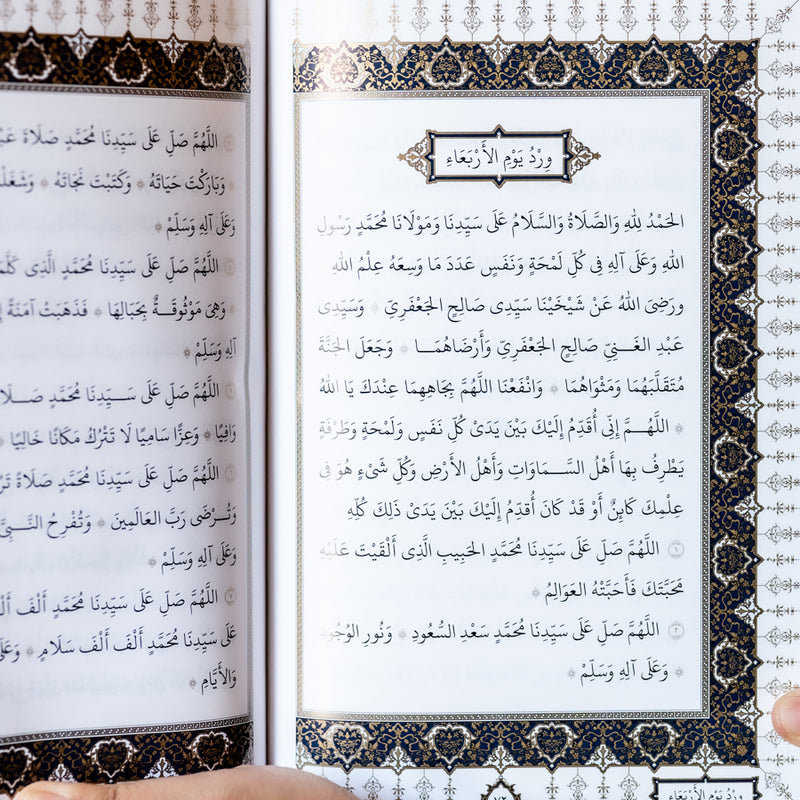 وِرْدُ يَوْمِ الأَرْبَعَاءِ
الحَمْدُ لِلهِ وَالصَّلَاةُ وَالسَّلَامُ عَلَى سَيِّدِنَا وَمَوْلَانَا مُحَمَّدٍ رَسُولِ
اللهِ وَعَلَى آلِهِ فِى كُلِّ لَمْحَةٍ وَنَفَسٍ عَدَدَ مَا وَسِعَهُ عِلْمُ اللهِ
ورَضِىَ اللهُ عَنْ شَيْخَيْنَا سَيِّدِى صَالِحٍ الجَعْفَرِيِّ * وَسَيِّدِى
عَبْدِ الغَــنِيِّ صَالِحٍ الجَعْفَرِيِّ وَأَرْضَاهُمَــا * وَجَعَلَ الجَنَّةَ
مُتَقَلَّبَهُمَا وَمَثْوَاهُمَا * وَانْفَعْنَا اللَّهُمَّ بِجَاهِهِمَا عِنْدَكَ يَا اللهُ
* اللَّهُــمَّ إِنِّى أُقَدِّمُ إِلَيْكَ بَيْنَ يَدَىْ كُلِّ نَفَسٍ وَلَمْحَةٍ وَطَرْفَةٍ
يَطْرِفُ بِهَا أَهْلُ السَّــمَاوَاتِ وَأَهْلُ الأَرْضِ وَكُلِّ شَىْءٍ هُوَ فِى
عِلْمِكَ كَائِنٌ أَوْ قَدْ كَانَ أُقَدِّمُ إِلَيْكَ بَيْنَ يَدَىْ ذَلِكَ كُلِّهِ
١ اللَّهُمَّ صَلِّ عَلَى سَيِّدِنَا مُحَمَّدٍ الحَبِيبِ الَّذِى أَلْقَيْتَ عَلَيْهِ
مَحَبَّتَكَ فَأَحَبَّتْهُ العَوَالِمُ *
٢ اللَّهُمَّ صَلِّ عَلَى سَيِّدِنَا مُحَمَّدٍ سَعْدِ السُّعُودِ * وَنُورِ الوُجُودِ
* وَعَلَى آلِهِ وَسَلِّمْ *
٧٢
وِرْدُ يَوْمِ الأَرْبَعَاءِ
اللَّهُمَّ صَلِّ عَلَى سَيِّدِنَا مُحَمَّدٍ صَلَاةً
* وَبَارَكْتَ حَيَاتَهُ * وَكَتَبْتَ نَجَاتَهُ *
وَعَلَى آلِهِ وَسَلِّمْ *
اللَّهُمَّ صَلِّ عَلَى سَيِّدِنَا مُحَمَّدٍ الَّذِى
* وَهِىَ مَوْثُوقَــةٌ بِحِبَالِهَا * فَذَهَبَتْ آمِنَةً
آلِهِ وَسَلِّمْ *
اللَّهُمَّ صَلِّ عَلَى سَــيِّدِنَا مُحَمَّدٍ
وَافِيًا * وَعِزًّا سَامِيًا لَا تَتْرُكُ مَكَانًا خَالِيًا *
اللَّهُمَّ صَلِّ عَلَى سَيِّدِنَا مُحَمَّدٍ صَلَاةً
وَتُــرْضَى رَبَّ العَالَمِينَ * وَتُفْرِحُ
وَعَلَى آلِهِ وَسَلِّمْ *
٧ اللَّهُمَّ صَلِّ عَلَى سَيِّدِنَا مُحَمَّدٍ أَلْفَ
عَلَى سَيِّدِنَا مُحَمَّدٍ أَلْفَ أَلْفَ سَلَامٍ *
وَالأَيَّامِ *